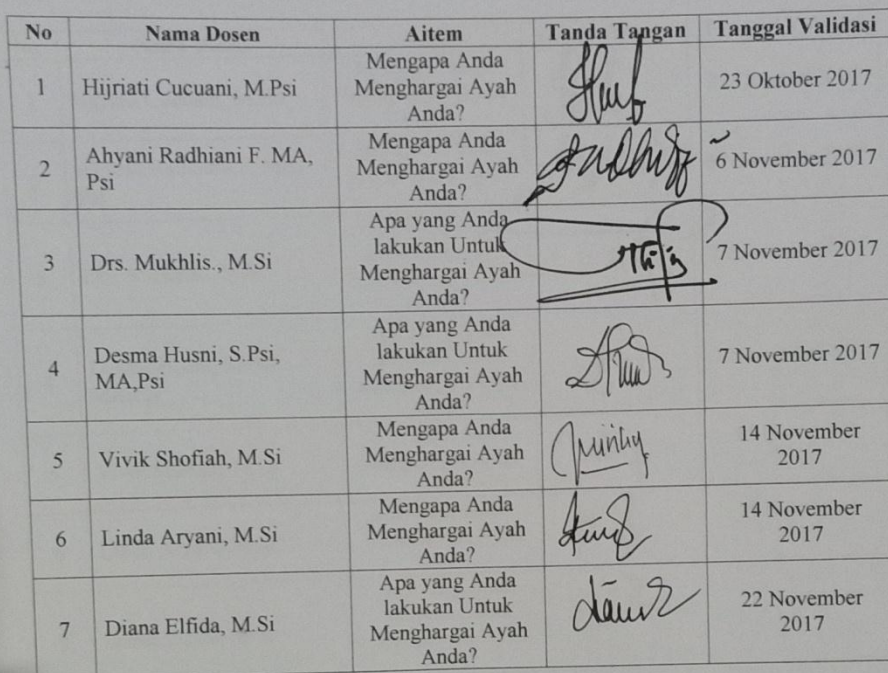 No Nama Dosen Aitem Tanda Tangan Tanggal Validasi
1 Hijriati Cucuani, M.Psi Mengapa Anda
Menghargai Ayah
Anda? 23 Oktober 2017
2 Ahyani Radhiani F. MA,
Psi Mengapa Anda
Menghargai Ayah
Anda? 6 November 2017
3 Drs. Mukhlis., M.Si Apa yang Anda
lakukan Untuk
Menghargai Ayah
Anda? 7 November 2017
4 Desma Husni, S.Psi,
MA,Psi Apa yang Anda
lakukan Untuk
Menghargai Ayah
Anda? 7 November 2017
5 Vivik Shofiah, M.Si Mengapa Anda
Menghargai Ayah
Anda? 14 November
2017
6 Linda Aryani, M.Si Mengapa Anda
Menghargai Ayah
Anda? 14 November
2017
7 Diana Elfida, M.Si Apa yang Anda
lakukan Untuk
Menghargai Ayah
Anda? 22 November
2017